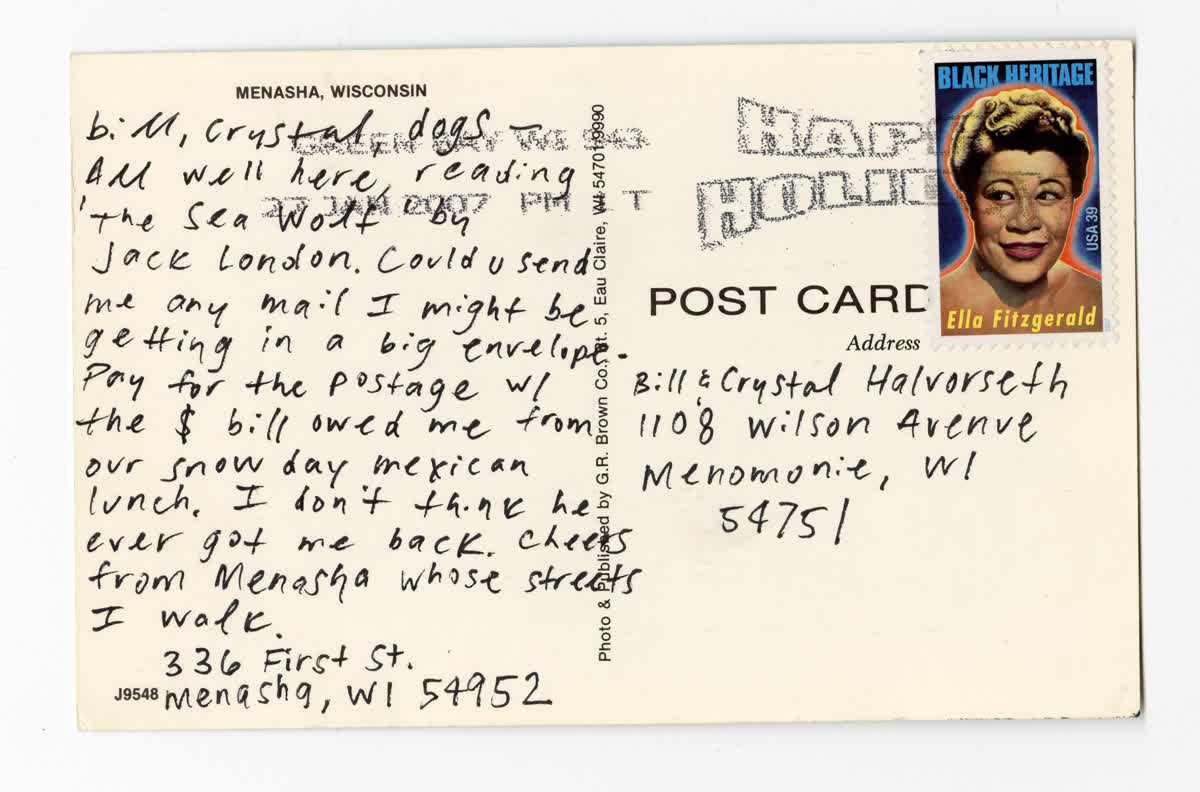 MENASHA, WISCONSIN
bill, Crystal, dogs –
All well here, reading
"The Sea Wolf" by
Jack London. Could u send
me any mail I might be
getting in a big envelope.
Pay for the postage w/
the $ bill owed me from
our snow day mexican
lunch. I don't think he
ever got me back. Cheers
from Menasha whose streets
I walk.
336 First St.
Menasha, WI 54952
J9548
GREEN BAY WI 543
27 JAN 2007 PM T
Photo & Published by G.R. Brown Co., Rt. 5, Eau Claire, WI 54701-9990
HAP
HOLI
BLACK HERITAGE
USA 39
Ella Fitzgerald
POST CARD
Address
Bill & Crystal Halvorseth
1108 Wilson Avenue
Menomonie, WI
54751